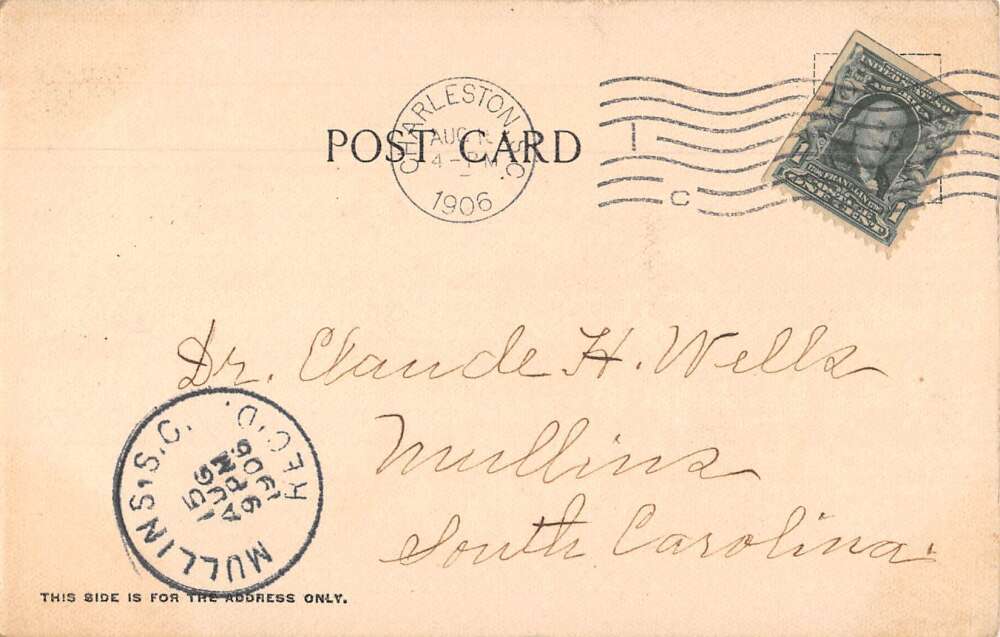 CHARLESTON, S.C.
AUG 1
4 - PM
1906
POST CARD
C
1 1
ONE CENT
Dr. Claude H. Wells
Mullins
South Carolina.
MULLINS, S.C. REC'D.
AUG
PM
1906
THIS SIDE IS FOR THE ADDRESS ONLY.